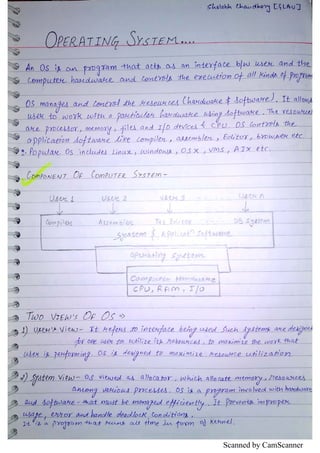 Shailabh Chaudhary [GLAU]
OPERATING SYSTEM....
An OS is an program that acts as an interface b/w user and the
Computer hardware and controls the execution of all kinds of program
OS manages and control the resources (hardware & software). It allows
user to work with a particular hardware using software. The resources
are processor, memory, files and I/O devices & CPU. OS controls the
application software like compiler, assembler, Editor, browser etc.
Popular Os includes Linux, windows, OSX, VMS, AIX etc.
COMPONENT OF COMPUTER SYSTEM-
User 1 User 2 User 3 User n
Compiler Assembler Text Editor DB System
System & Software
Operating System
Computer Hardware
CPU, RAM, I/O
TWO VIEW'S OF OS ⇒
1) USER'S VIEW- It refers to interface being used. Such systems are designed
for one user to utilize its resources. To maximize the work that
user is performing. OS is designed to maximize resource utilization
2) System View- OS viewed as allocator, which allocate memory, resources
among various processes. OS is a program involved with hardware
and software that must be managed efficiently. It prevents improper
usage, error and handle deadlock conditions.
It is a program that runs all time in form of kernel.
Scanned by CamScanner